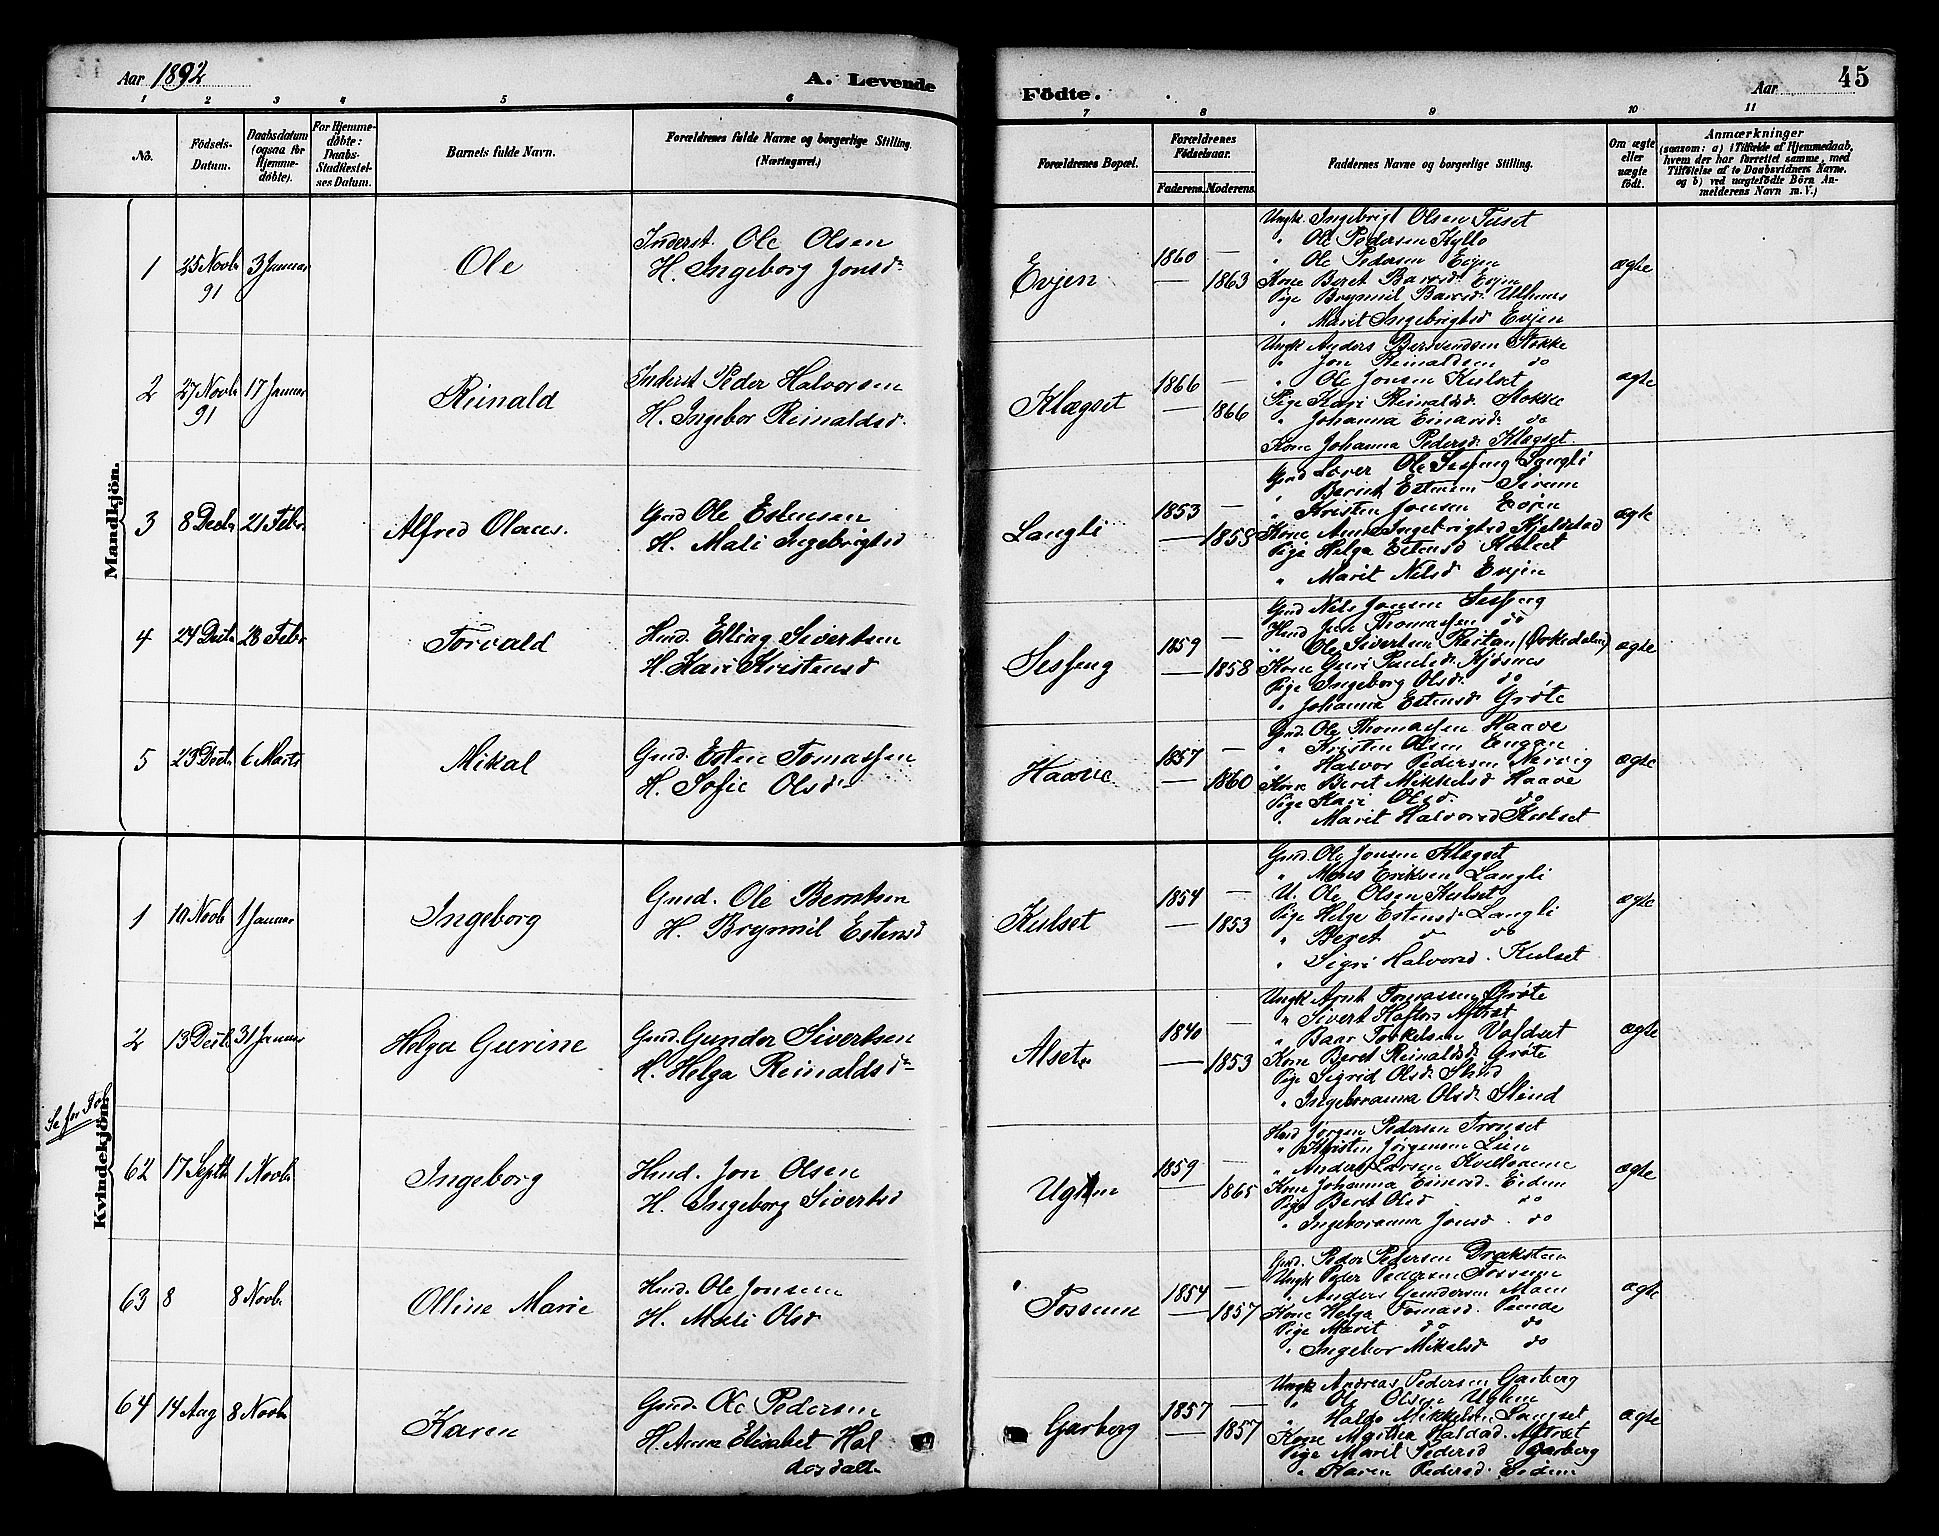 Aar 1892
A. Levende
Fødte.
Aar
45
1 2 3 4 5 6 7 8 9 10 11
No.
Fødsels-Datum.
Daabsdatum (ogsaa for Hjemme-døbte).
For Hjemme-døbte: Daabs-Stadfæstel-ses Datum.
Barnets fulde Navn.
Forældrenes fulde Navne og borgerlige Stilling. (Næringsvei.)
Forældrenes Bopæl.
Forældrenes Fødselsaar.
Faderens. Moderens.
Faddernes Navne og borgerlige Stilling.
Om ægte eller uægte født.
Anmærkninger (saasom: a) i Tilfælde af Hjemmedaab, hvem der har forrettet samme, med Tilføielse af to Daabsvidners Navne. og b) ved uægtefødte Børn An-melderens Navn m. V.)
Mandkjøn.
1 25 Novb 91 3 Januar Ole
Inderst. Ole Olsen
H. Ingeborg Jonsd.
Evjen 1860 — — 1863
Ungk. Ingebrigt Olsen Tuset
" Ole Pedersen Kyllo
" Ole Pedersen Evjen
Kone Beret Baarsd. Evjen
Pige Brynmil Baarsd.
" Marit Ingebrigtsd Evjen
ægte
2 27 Novb 91 17 Januar Reinald
Inderst Peder Halvorsen
H. Ingebor Reinaldsd.
Klægset 1866 — — 1866
Ungk Anders Stokke
" Jon Reinaldsen do
" Ole Jonsen Kulset
Pige Kari Reinaldsd. Stokke
" Johanna Einarsd. do
Kone Johanna Pedersd. Klægset.
ægte
3 8 Decb 21 Febr Alfred Olaus.
Gmd Ole Estensen
H. Mali Ingebrigtsd
Langli 1853 — — 1858
Gmd Ole Sesseng Langli
" Bernt Estensen
" Kristen Jonsen Evjen
Kone Anne Ingebrigtsd Kjeldstad
Pige Helga Estensd Kulset
" Marit Nilsd Evjen
ægte
4 24 Decb. 28 Febr Torvald
Hmd. Elling Sivertsen
H. Kari Kristensd
Sesseng 1859 — — 1858
Gmd Nils Jonsen Sesseng
Hmd Jens Thomassen do
" Ole Sivertsen (Orkedalen)
Kone Guri Paulsd. Kjøsnes
Pige Ingeborg Olsd. do
" Johanna Estensd Grøte
ægte
5 23 Decb. 6 Marts Mikal
Gmd. Esten Tomassen
H. Sofie Olsd.
Haave 1857 — — 1860
Gmd. Ole Thomassen Haave
" Kristen Olsen Engan
" Halvor Pedersen Nervig
Kone Beret Mikkelsd Haave
Pige Kari Olsd. do
" Marit Halvorsd Kulset
ægte
Kvindekjøn.
1 19 Novb 1 Januar Ingeborg
Gmd. Ole Berntsen
H. Brynmil Estensd
Kulset 1854 — — 1853
Gmd. Ole Jonsen Klægset
" Mons Eriksen Langli
U. Ole Olsen Kulset
Pige Helge Estensd. Langli
" Beret do do
" Sigri Halvorsd. Kulset
ægte
2 13 Decb. 31 Januar Helga Gurine
Gmd. Gunder Sivertsen
H. Helga Reinaldsd.
Alset 1840 — — 1853
Ungk Arnt Tomassen Grøte
" Sivert Haftors. Aftræt
" Baar Torkelsen Valdset
Kone Beret Reinaldsd. Grøte
Pige Sigrid Olsd.
" Ingeboranna Olsd.
ægte
62 17 Septb 1 Novb. Ingeborg
Hmd. Jon Olsen
H. Ingeborg Sivertsd
Uglem 1859 — — 1865
Hmd Jørgen Pedersen Tronset
" Kristen Jørgensen Lien
" Anders Larsen
Kone Johanna Einarsd. Eidem
Pige Beret Olsd do
" Ingeboranna Jonsd. do
ægte
63 8 8 Novb. Olline Marie
Hmd. Ole Jonsen
H. Mali Olsd
Fossum 1854 — — 1857
Gmd. Peder Pedersen Draksten
Ungk Peder Pedersen Fossum
" Anders Gundersen Moen
Kone Helga Tomasd.
Pige Marit do do
" Ingebor Mikalsd do
ægte
64 14 Aug 8 Novb. Karen
Gmd. Ole Pedersen
H. Anne Elisabet Hal
dosdatt.
Garberg 1857 — — 1857
Ungk Andreas Pedersen Garberg
" Ole Olsen Uglem
" Haldo Mikkelsen Langset
Kone Haldosd. Aftræt
Pige Marit Pedersd Garberg
" Karen Pedersd. Eidem
ægte